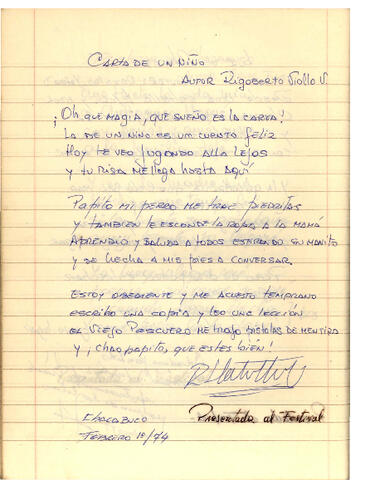 CARTA DE UN NIÑO
AUTOR Rigoberto Tiollo V.
¡Oh que MAGIA, QUE SUEÑO ES LA CARTA!
LA DE UN NIÑO ES UM CUENTO FELIZ
HOY TE VEO JUGANDO ALLA LEJOS
Y TU RISA ME LLEGA HASTA AQUÍ
PAPITO MI PERRO ME TRAE PIEDRITAS
Y TAMBIEN LE ESCONDE LA ROPA, A LA MAMÁ
APRENDIÓ Y SALUDA A TODOS ESTIRANDO SU MANITO
Y SE HECHA A MIS PIES A CONVERSAR.
ESTOY OBEDIENTE Y ME ACUESTO TEMPRANO
ESCRIBO UNA COPIA Y LEO UNA LECCIÓN
EL VIEJO PASCUERO ME TRAJO PISTOLAS DE MENTIRA
Y, ¡CHAO PAPITO, QUE ESTES BIÉN!
CHACABUCO
Presentada al Festival
FEBRERO 1º/74